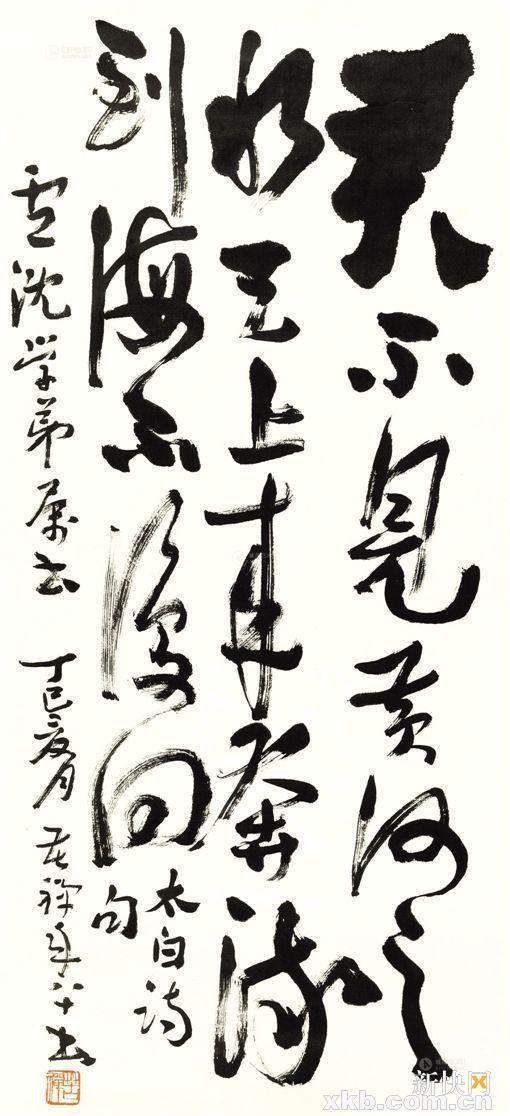 君不见黄河之
水天上来奔流
到海不复回
太白诗
句
沈学弟属书
丁巳夏月老禅年八十书
新快网
xkb.com.cn